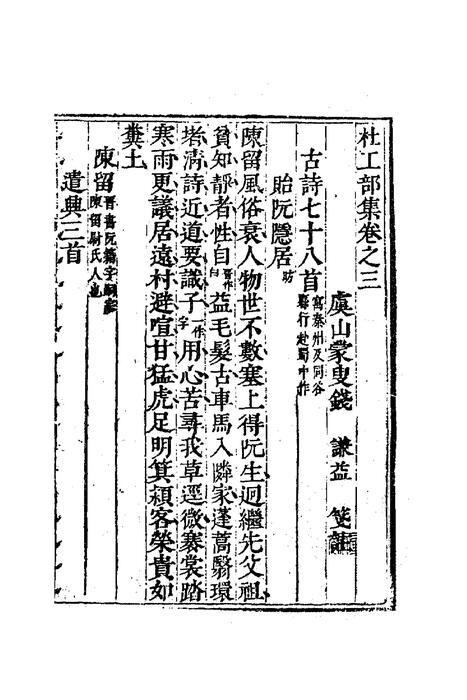 杜工部集卷之三
虞山蒙叟錢 謙益 箋註
古詩七十八首 寓秦州及同谷縣行赴蜀中作
貽阮隱居 昉
陳留風俗衰人物世不數塞上得阮生迥繼先父祖
貧知靜者性自 晉作白 益毛髮古車馬入隣家蓬蒿翳環
堵清詩近道要識子 一作字 用心苦尋我草逕微褰裳踏
寒雨更議居遠村避喧甘猛虎足明箕潁客榮貴如
糞土
陳留 晉書阮籍字嗣宗陳留尉氏人也
遣興三首